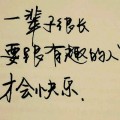 一辈子很长
要跟有趣的人
才会快乐.